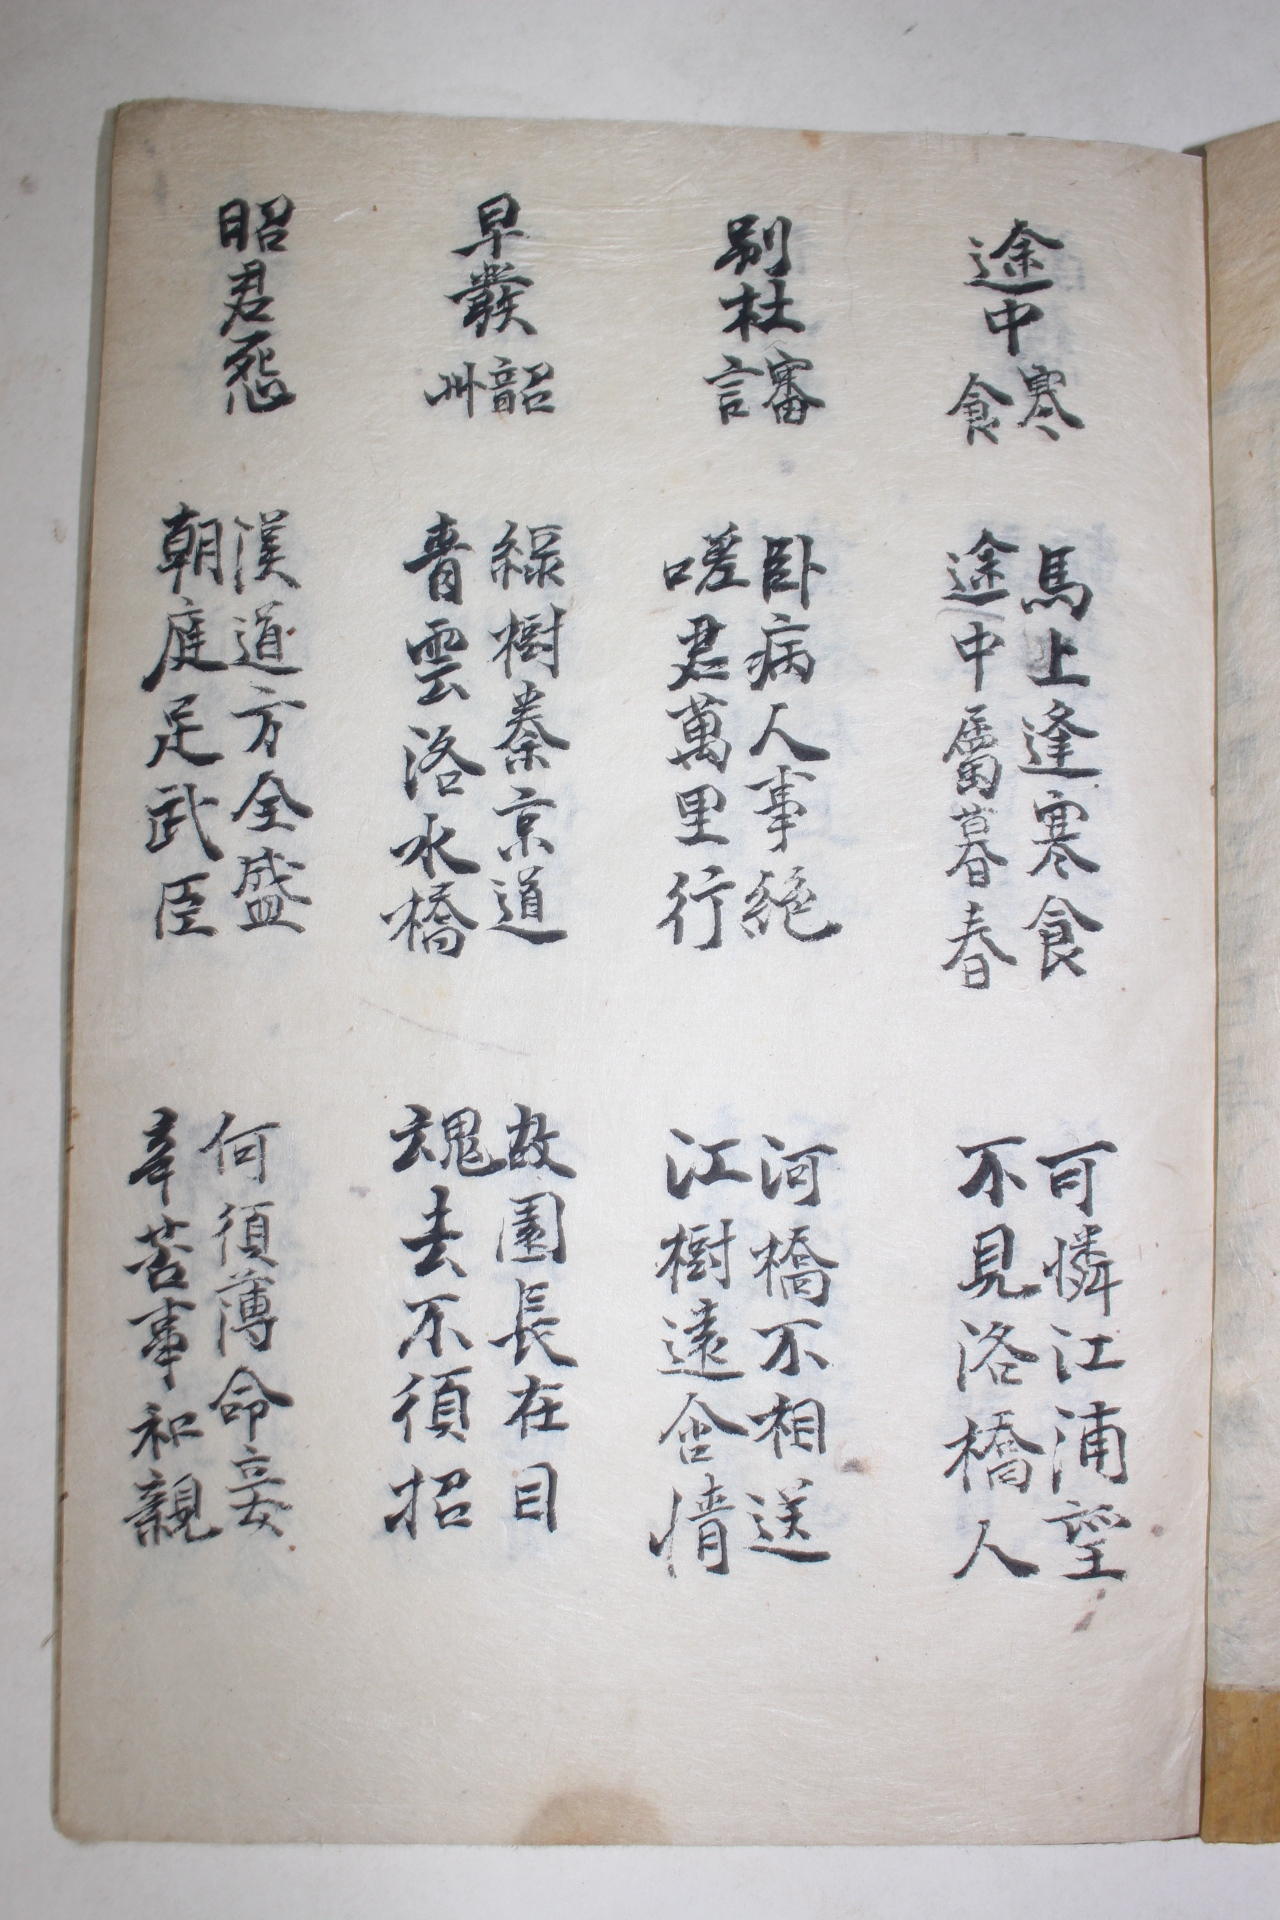 途中寒食
馬上逢寒食
途中屬暮春
可憐江浦望
不見洛橋人
別杜審言
臥病人事絕
嗟君萬里行
河橋不相送
江樹遠含情
早發韶州
綠樹秦京道
青雲洛水橋
故園長在目
魂去不須招
昭君怨
漢道方全盛
朝庭足武臣
何須薄命妾
辛苦事和親